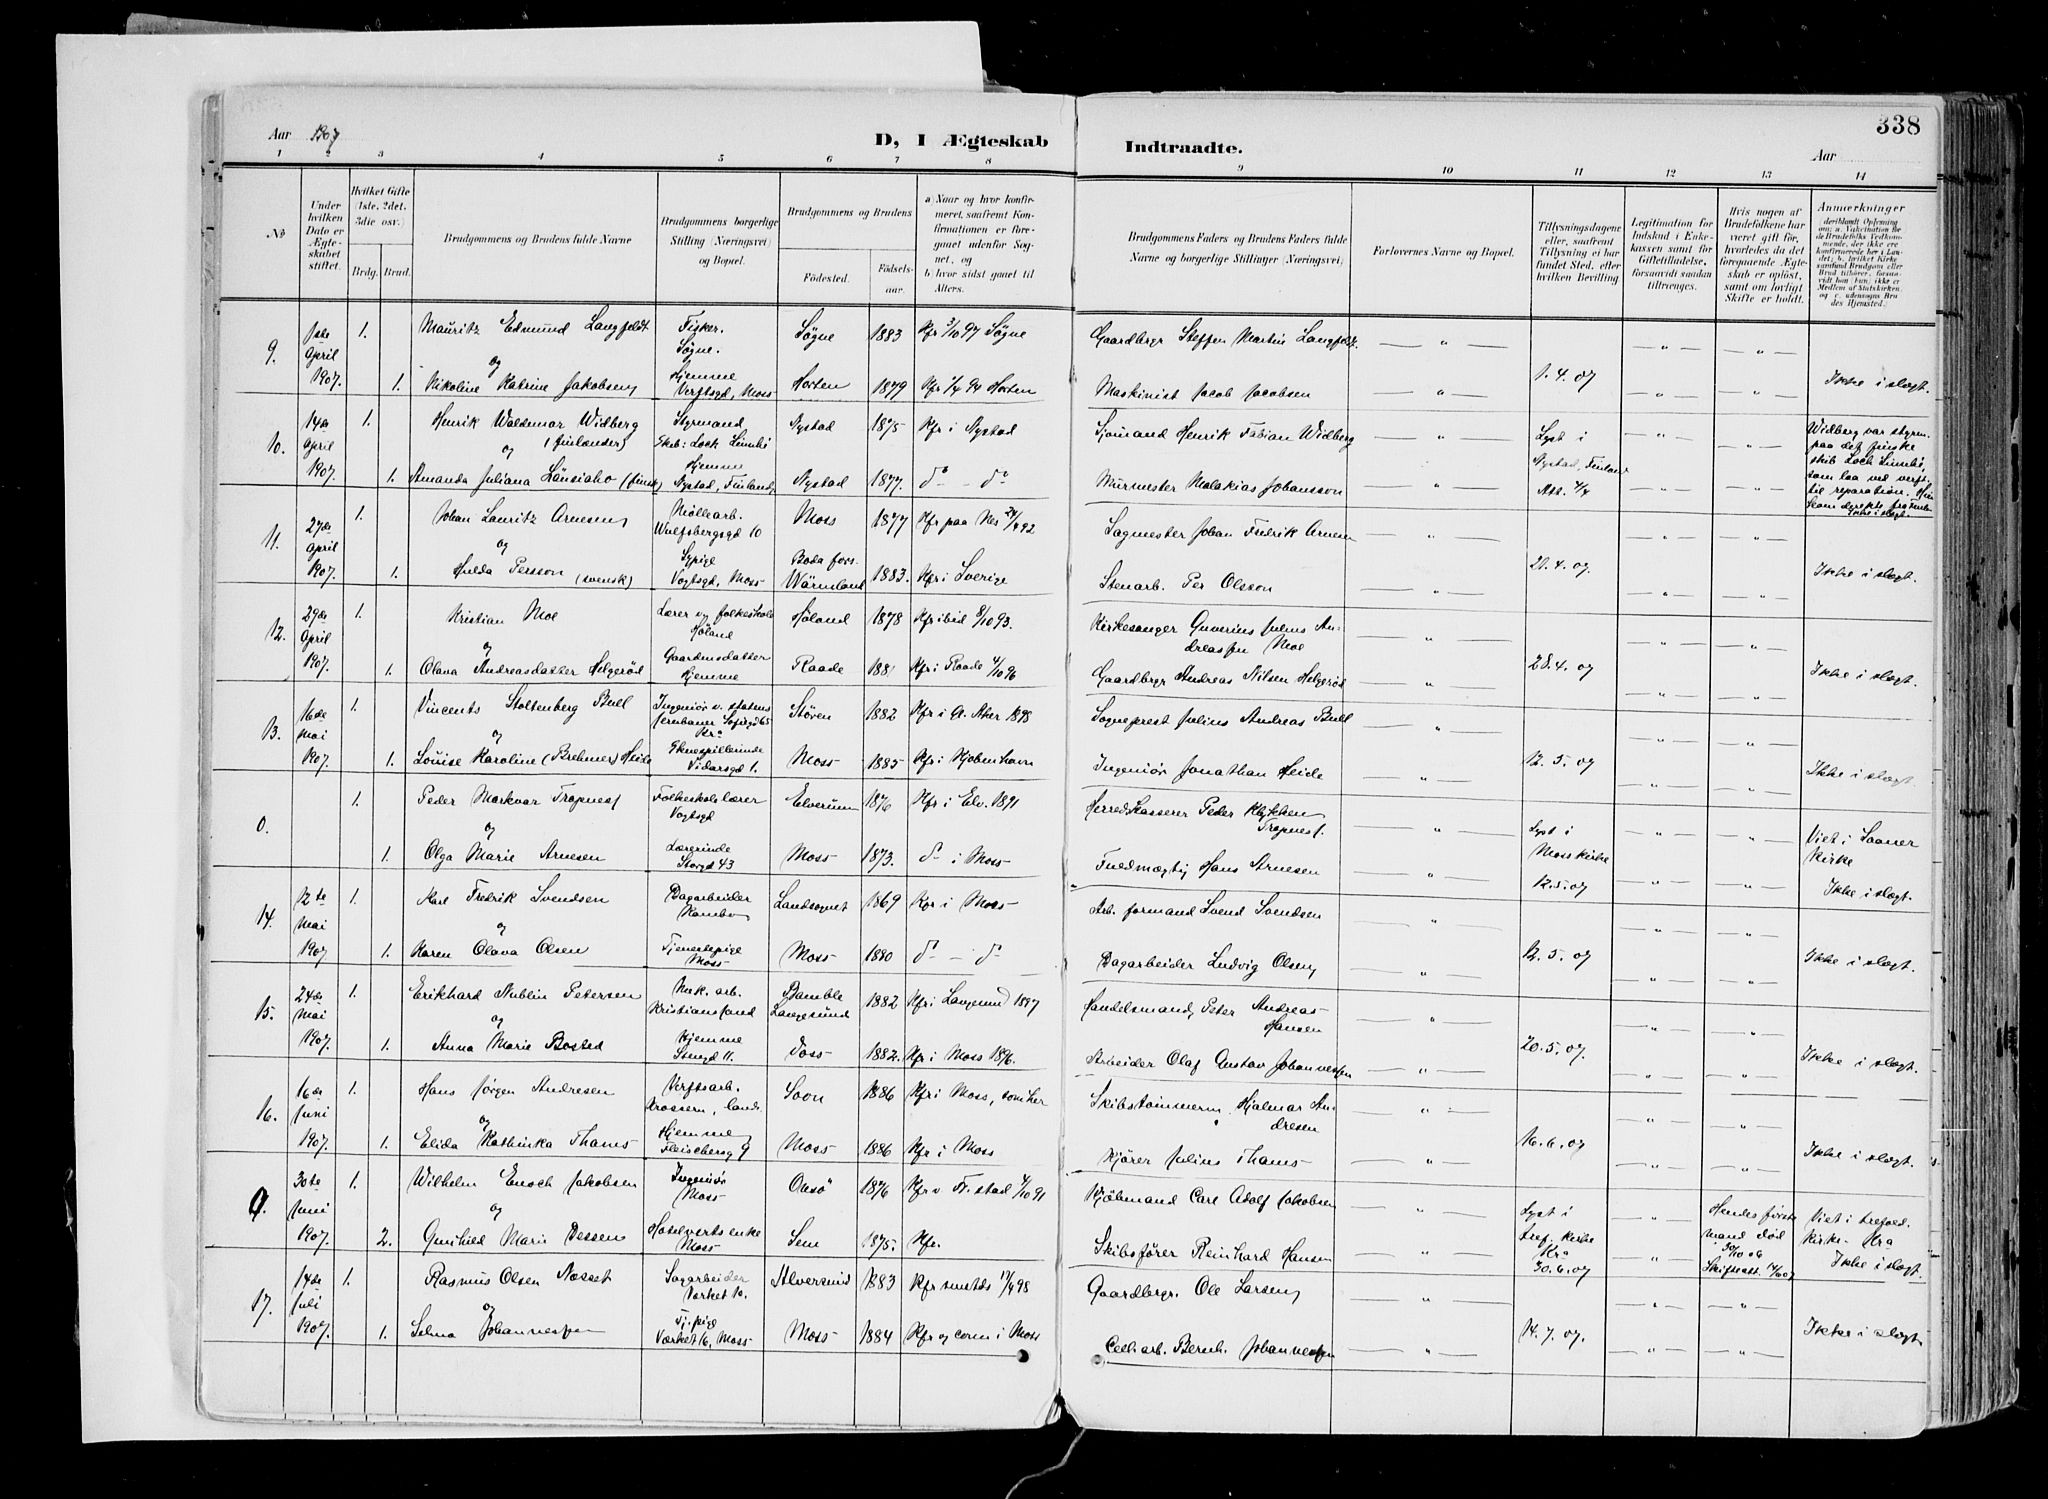 Aar 1907
D, I Ægteskab Indtraadte.
338
Aar
1 2 3 4 5 6 7 8 9 10 11 12 13 14
No
Under hvilken Dato er Ægteskabet stiftet.
Hvilket Gifte (1ste, 2det, 3die osv.)
Brdg. Brud.
Brudgommens og Brudens fulde Navne
Brudgommens borgerlige Stilling (Næringsvei) og Bopæl.
Brudgommens og Brudens
Födested.
Födselsaar.
a) Naar og hvor konfirmeret, saafremt Konfirmationen er foregaaet udenfor Sognet, og b) hvor sidst gaaet til Alters.
Brudgommens Faders og Brudens Faders fulde Navne og borgerlige Stillinger (Næringsvei)
Forlovernes Navne og Bopæl.
Tillysningsdagene eller, saafremt Tillysning ei har fundet Sted, efter hvilken Bevilling
Legitimation for Indskud i Enkekassen samt for Giftetilladelse, forsaavidt saadan tiltrænges.
Hvis nogen af Brudefolkene har været gift før, hvorledes da det foregaaende Ægteskab er oplöst, samt om lovligt Skifte er holdt.
Anmærkninger
9. 1ste April 1907. 1. Mauritz Edmund Langfeldt Fisker. Søgne. Søgne 1883 Kfr 3/10 97 Søgne Gaardbrgr Steffen Martin Langfeldt
og
1. Nikoline Katrine Jakobsen Hjemme Verftsgd, Moss Horten 1879 Kfr 1/4 94 Horten Maskinist Jacob Jacobsen 1.4.07 Ikke i slægt.
10. 14de April 1907. 1. Henrik Waldemar Widberg (finlænder) Styrmand Nystad 1875 Kfr i Nystad Sjömand Henrik Fabian Widberg Lyst i Nystad, Finland Widberg var styrm. paa det finske skib Loch Linnhe, som laa ved verft. til reparation.
og
1. Amanda Juliana Länsiaho Hjemme Nystad, Finland Nystad 1877. do - do Murmester Malakias Johansson
11. 27de April 1907. 1. Johan Lauritz Arnesen Møllearb. Wulfsbergsgd 10 Moss 1877 Kfr paa Nes 24/4 92 Sagmester Johan Fredrik Arnesen
og
1. Hulda Persson (svensk) Sypige Vogtsgd, Moss Boda fors. Wärmland 1883. Kfr i Sverige Stenarb. Per Olsson 21.4.07. Ikke i slægt.
12. 29de April 1907. 1. Kristian Moe Lærer v. folkeskole Høland Høland 1878 Kfr ibid 8/10 93. Kirkesanger Guverius Julius Andreassen Moe
og
1. Olava Andreasdatter Helgerød Gaardmsdatter Hjemme Raade 188 Kfr i Raade 4/10 96 Gaardbrgr Andreas Nilsen Helgerød 28.4.07 Ikke i slægt.
13. 16de Mai 1907. 1. Vincents Stoltenberg Bull Ingeniør v. statens jernbaner Sofiegd 65 Kra Støren 1882 Kfr i G. Aker 1898 Sogneprest Julius Andreas Bull
og
1. Louise Karoline (Brehmer) Heide Skuespillerinde Vidarsgd 1. Moss 1885 Kfr i Kjøbenhavn Ingeniør Jonathan Heide 12.5.07 Ikke i slægt
0. 1. Peder Markvar Tropnes Folkeskolelærer Vogtsgd Elverum 1876 Kfr i Elv. 1891 Herredskasserer Peder Klykken Tropnes Lyst i Moss kirke 12.5.07 Viet i Saaner Kirke
og
1. Olga Marie Arnesen Lærerinde Storgd 43 Moss 1873. do i Moss Fuldmægtig Hans Arnesen Ikke i slægt.
14. 12te Mai 1907 1. Karl Fredrik Svendsen Bagarbeider Kambo Landsognet 1869 Kfr i Moss Arb. formand Svend Svendsen
og
1. Karen Olava Olsen Tjenestepige Moss Moss 1880 do - do Bagarbeider Ludvig Olsen 12.5.07 Ikke i slægt.
15. 24de Mai 1907. 1. Erikhard Nublin Petersen Mek. arb. Kristianssund Bamble Langesund 1882 Kfr i Langesund 1897 Handelsmand Peter Andreas Hansen
og
1. Anna Marie Bosted Hjemme Storgd 11. Moss 1882. Kfr i Moss 1896. Arbeider Olaf Gustav Johannessen 20.5.07. Ikke i slægt.
16. 16de Juni 1907. 1. Hans Jørgen Andresen Verftsarb. Krossern, lands Soon 1886 Kfr i Moss, som her Skibstømmerm. Hjalmar Andresen
og
1. Elida Kathinka Thams Hjemme Fleischersg 9 Moss 1886 Kfr i Moss Kjører Julius Thams 16.6.07 Ikke i slægt.
0. 30te Juni 1907. 1. Wilhelm Enoch Jakobsen Ingeniør Moss Onsø 1876 Kfr v Fr.stad 4/10 91 Kjöbmand Carl Adolf Jakobsen Lyst i tref. kirke Kra 30.6.07 Hendes første mand død 30/10 06 Viet i trefold. Kirke Kra
og
2. Gunhild Marie Dessen Hotelvertsenke Moss Sem 1875. Kfr. Skibsfører Reinhard Hansen Ikke i slægt.
17. 14de Juli 1907. 1. Rasmus Olsen Nesset Sagarbeider Værket 16. Alversund 1883 Kfr smsteds 17/4 98 Gaardbrgr. Ole Larsen
og
1. Selma Johannessen Værket 16, Moss Moss 1884 Kfr og comm i Moss Cell. arb. Bernh. Johannessen 14.7.07. Ikke i slægt